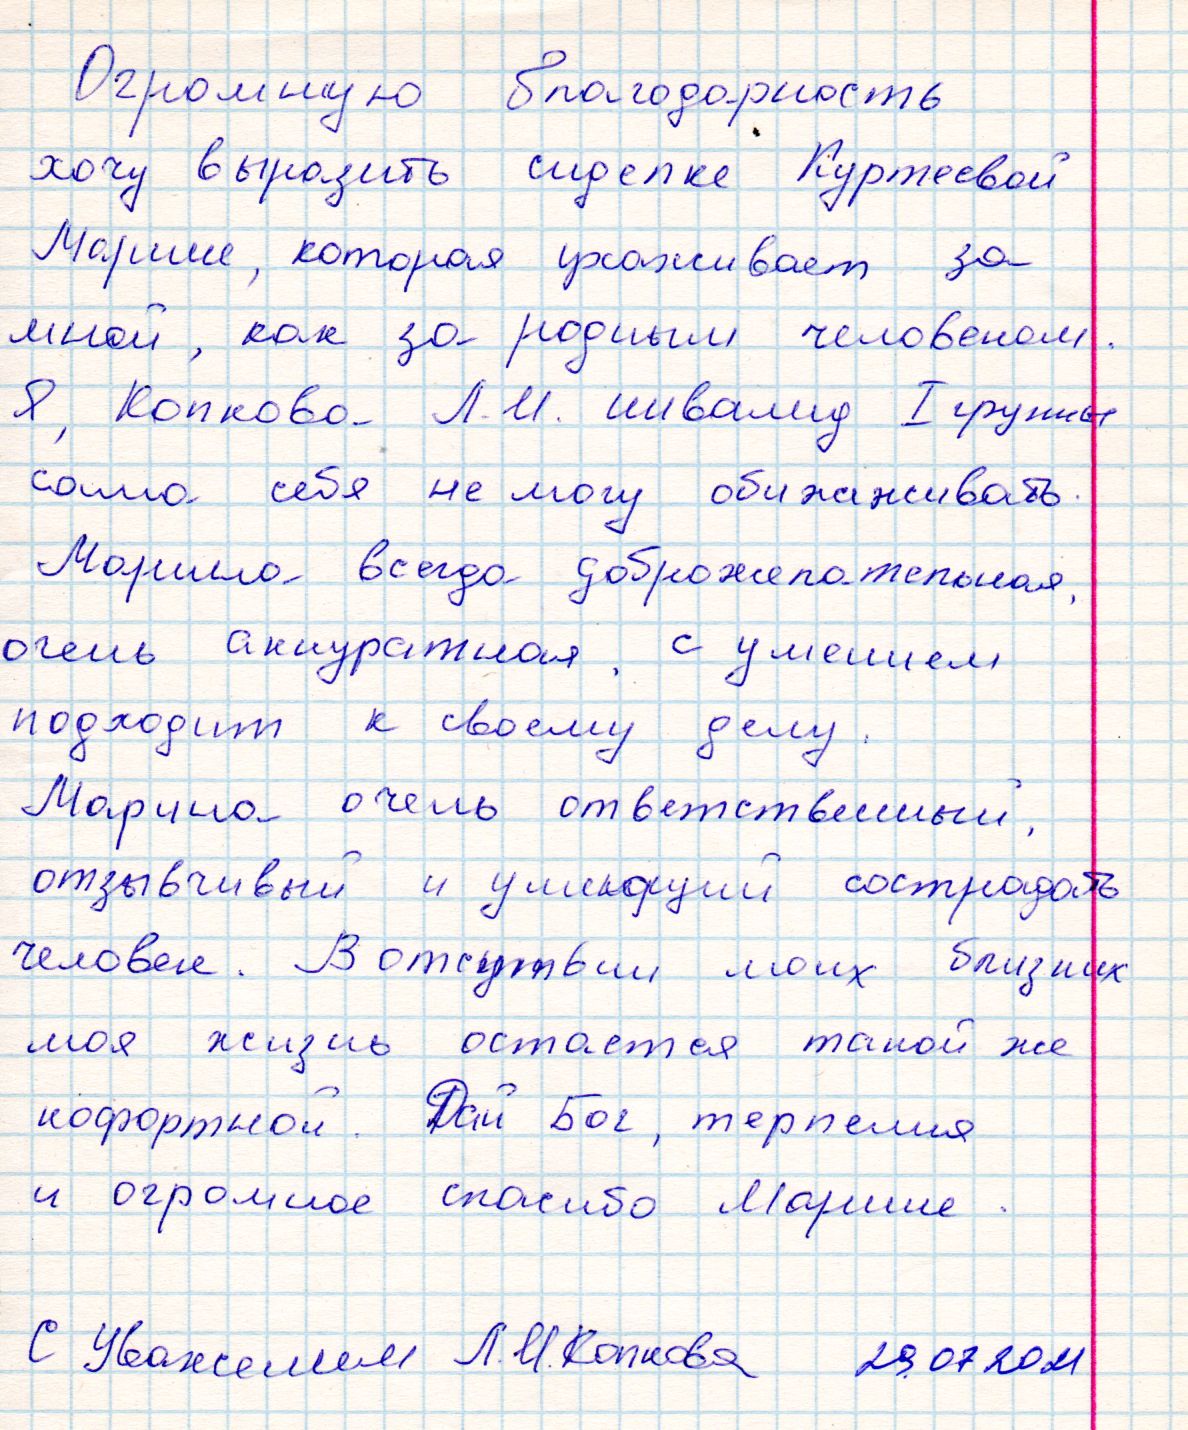 Огромную благодарность
хочу выразить сиделке Куртеевой
Марине, которая ухаживает за
мной, как за родным человеком.
Я, Копкова Л.И. инвалид I группы
сама себя не могу обихаживать.
Марина всегда доброжелательная,
очень аккуратная, с умением
подходит к своему делу.
Марина очень ответственный,
отзывчивый и умеющий сострадать
человек. В отсутствии моих близких
моя жизнь остается такой же
кофортной. Дай Бог, терпения
и огромное спасибо Марине.
С Уважением Л.И.Копкова 29.07.2011